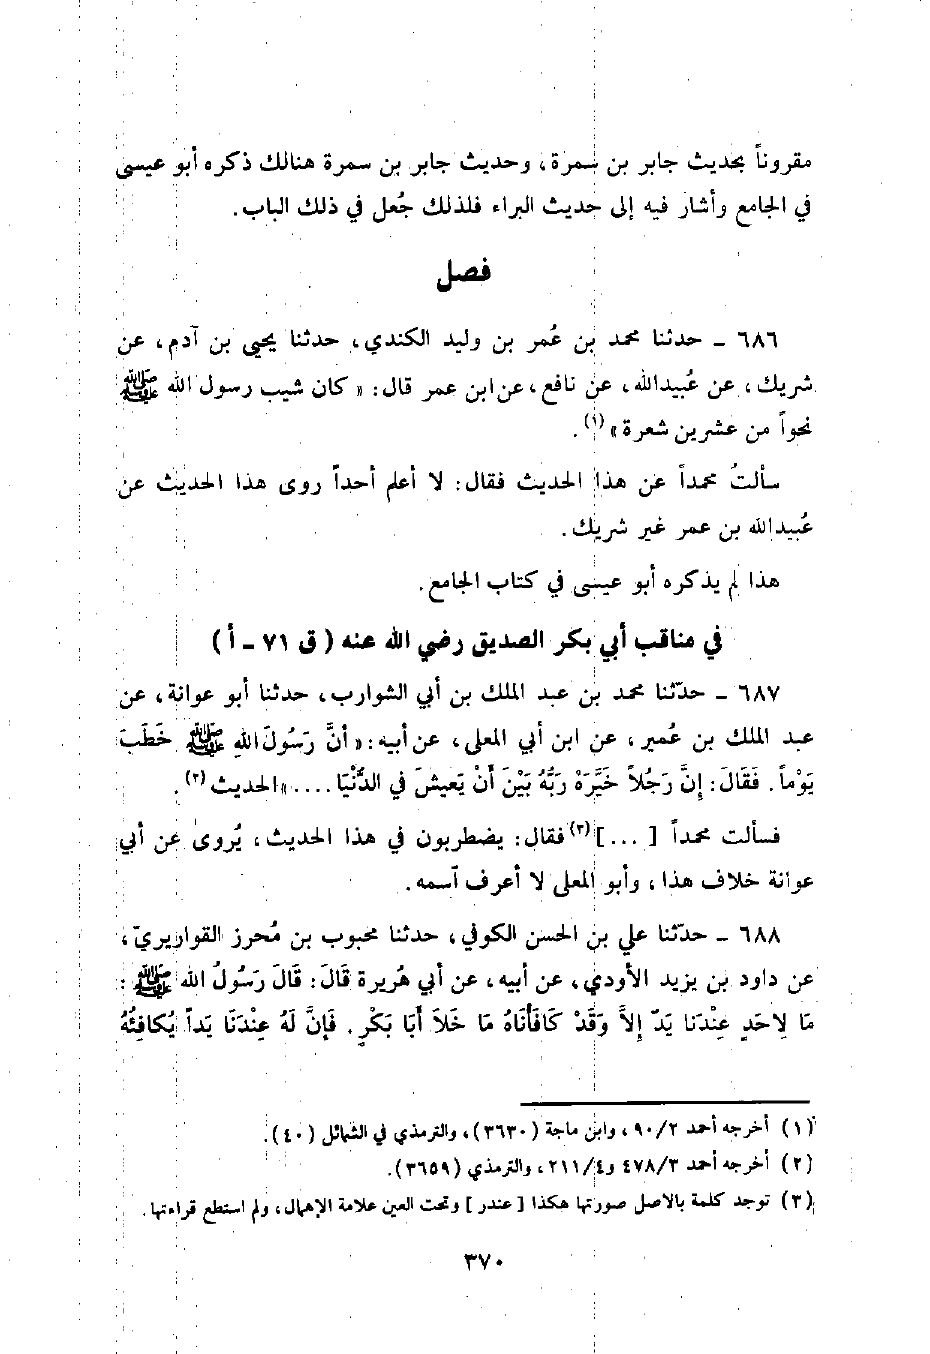 مقروناً بحديث جابر بن سمرة، وحديث جابر بن سمرة هنالك ذكره أبو عيسى
في الجامع وأشار فيه إلى حديث البراء فلذلك جُعل في ذلك الباب.
فصل
٦٨٦ - حدثنا محمد بن عُمر بن وليد الكندي، حدثنا يحيى بن آدم، عن
شريك، عن عُبيدالله، عن نافع، عن ابن عمر قال: « كان شيب رسول الله ﷺ
نحواً من عشرين شعرة » (١).
سألتُ محمداً عن هذا الحديث فقال: لا أعلم أحداً روى هذا الحديث عن
عُبيدالله بن عمر غير شريك.
هذا لم يذكره أبو عيسى في كتاب الجامع.
في مناقب أبي بكر الصديق رضي الله عنه ( ق ٧١ - أ )
٦٨٧ - حدّثنا محمد بن عبد الملك بن أبي الشوارب، حدثنا أبو عوانة، عن
عبد الملك بن عُمير، عن ابن أبي المعلى، عن أبيه: « أنَّ رَسُولَ اللهِ ﷺ خَطَبَ
يَوْماً. فَقَالَ: إنَّ رَجُلاً خَيَّرَهُ رَبُّهُ بَيْنَ أَنْ يَعيشَ في الدُّنْيَا .... » الحديث (٢).
فسألت محمداً [ ... ] (٣) فقال: يضطربون في هذا الحديث، يُروى عن أبي
عوانة خلاف هذا، وأبو المعلى لا أعرف آسمه.
٦٨٨ - حدّثنا علي بن الحسن الكوفي، حدثنا محبوب بن مُحرز القواريريّ،
عن داود بن يزيد الأودي، عن أبيه، عن أبي هُريرة قَالَ: قَالَ رَسُولُ الله ﷺ :
مَا لِاحَدٍ عِنْدَنا يَدٌ إلاَّ وَقَدْ كَافَأْنَاهُ مَا خَلاَ أَبَا بَكْرٍ. فَإنَّ لَهُ عِنْدَنَا يَداً يُكافِئُهُ
(١) أخرجه أحمد ٩٠/٢، وابن ماجة (٣٦٣٠)، والترمذي في الشمائل (٤٠).
(٢) أخرجه أحمد ٤٧٨/٣ و٢١١/٤، والترمذي (٣٦٥٩).
(٣) توجد كلمة بالاصل صورتها هكذا [ عندر ] وتحت العين علامة الإهمال، ولم استطع قراءتها.
٣٧٠